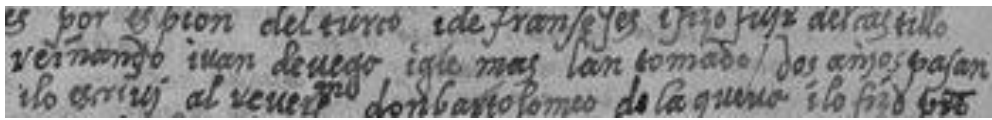 es por espion del turco i de franseses i hizo fuir del castillo
reinando iuan de uego i gle mas lan tomado / dos anjos pasan
ilo escriuj al reuer^mo don bartolomeo de la queua i lo hizo